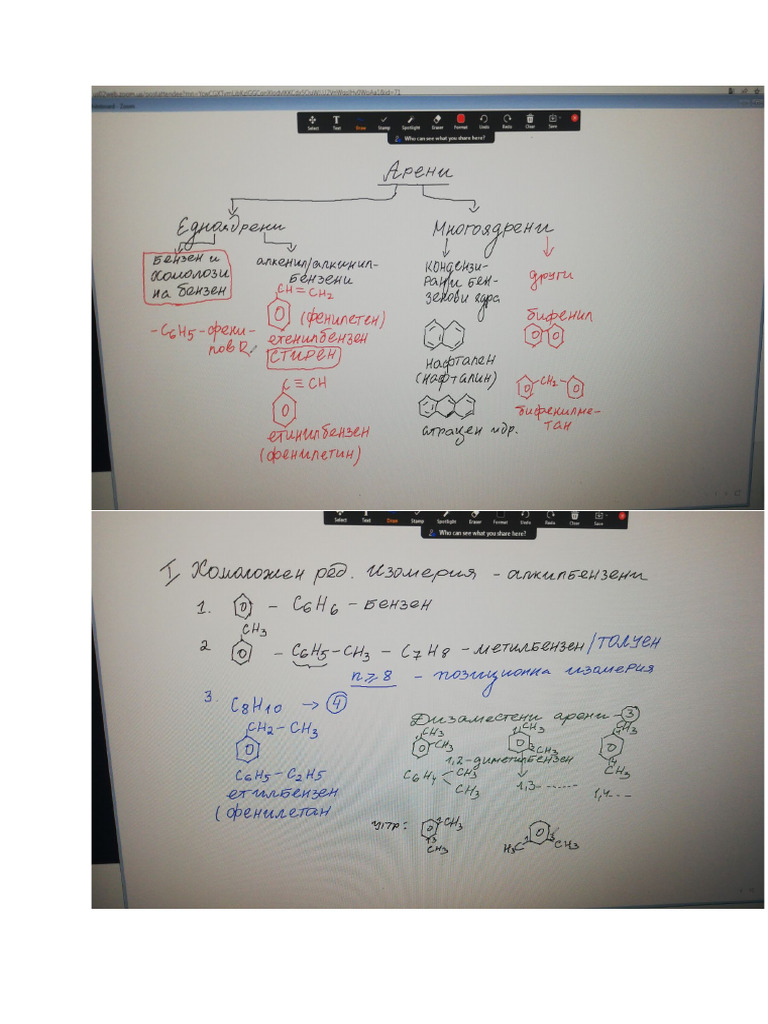 Select Text Draw Stamp Spotlight Eraser Format Undo Redo Clear Save
Who can see what you share here?
Арени
Едноядрени
Многоядрени
бензен и
хомолози
на бензен
-C6H5-фени-
лов R
алкенил/алкинил-
бензени
CH=CH2
(фенилетен)
етенилбензен
СТИРЕН
C≡CH
етинилбензен
(фенилетин)
кондензи-
рани бен-
зенови ядра
нафтален
(нафталин)
атрацен и др.
други
бифенил
CH2
бифенилме-
тан
Select Text Draw Stamp Spotlight Eraser Format Undo Redo Clear Save
Who can see what you share here?
I, Хомоложен ред. Изомерия - алкилбензени
1. - C6H6 - бензен
CH3
2 - C6H5-CH3 - C7H8 - метилбензен/толуен
n≥8 - позиционна изомерия
3. C8H10 → 4
CH2-CH3
C6H5-C2H5
етилбензен
(фенилетан
Дизаместени арени - 3
CH3
CH3
1,2-диметилбензен
C6H4 CH3
CH3
1 CH3
3 CH3
1,3-------
1 CH3
4
CH3
1,4---
упр:
1 CH3
3
CH3
H3C
1
3
CH3